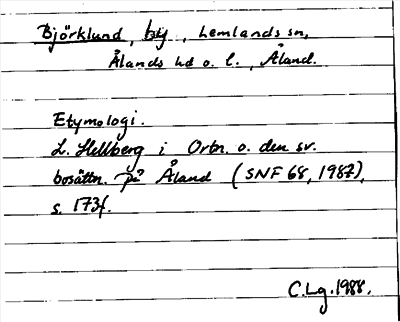 Björklund, by, Lemlands sn,
Ålands hd o. l., Åland.
Etymologi.
L. Hellberg i Ortn. o. den sv.
bosättn. på Åland (SNF 68, 1987),
s. 173f.
C.Lg. 1988.